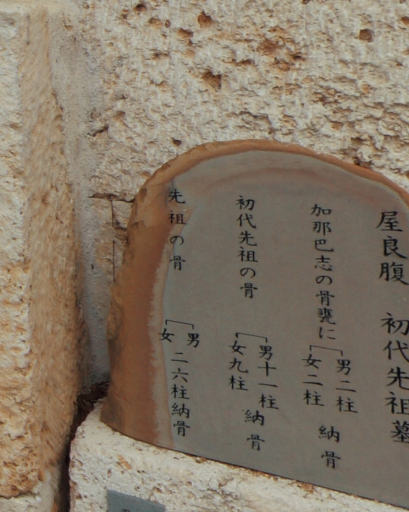 屋良腹 初代先祖墓
加那巴志の骨甕に 男二柱 女二柱 納骨
初代先祖の骨 男十一柱 女九柱 納骨
先祖の骨 男 女 二六柱納骨